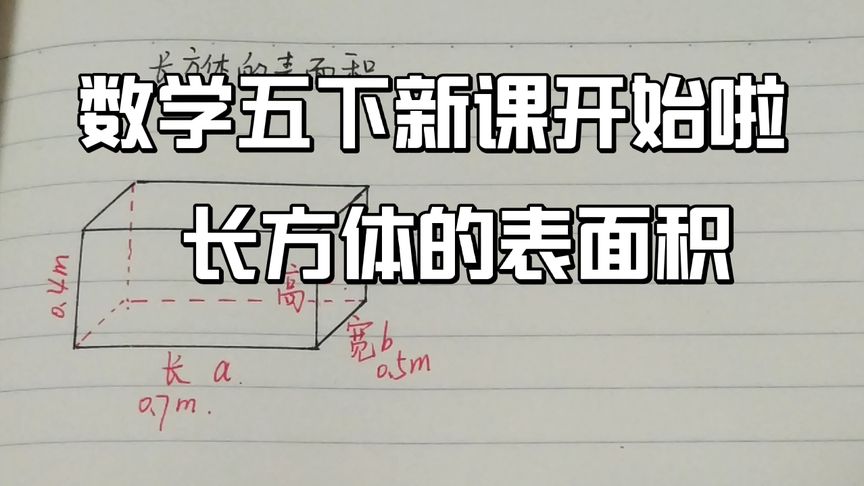 长方体的表面积
数学五下新课开始啦
长方体的表面积
0.4m
高
宽b
0.5m
长 a
0.7m.